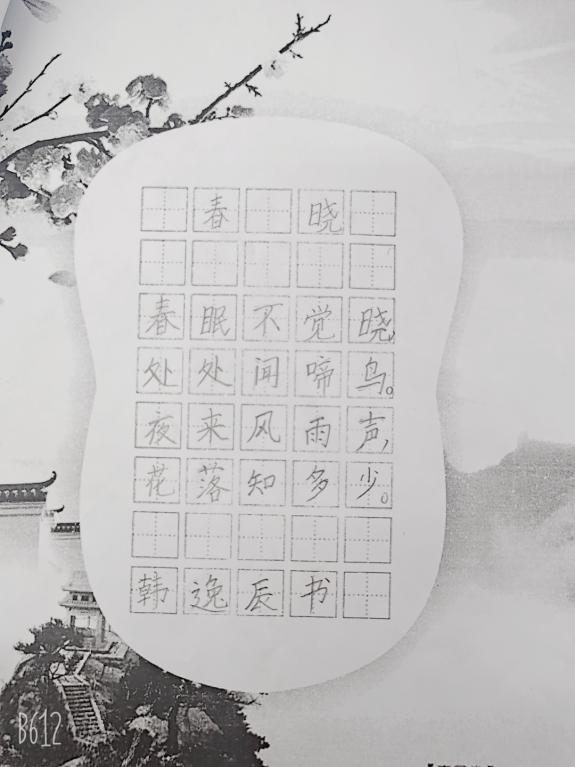 春晓
春眠不觉晓,
处处闻啼鸟。
夜来风雨声,
花落知多少。
韩逸辰书
B612